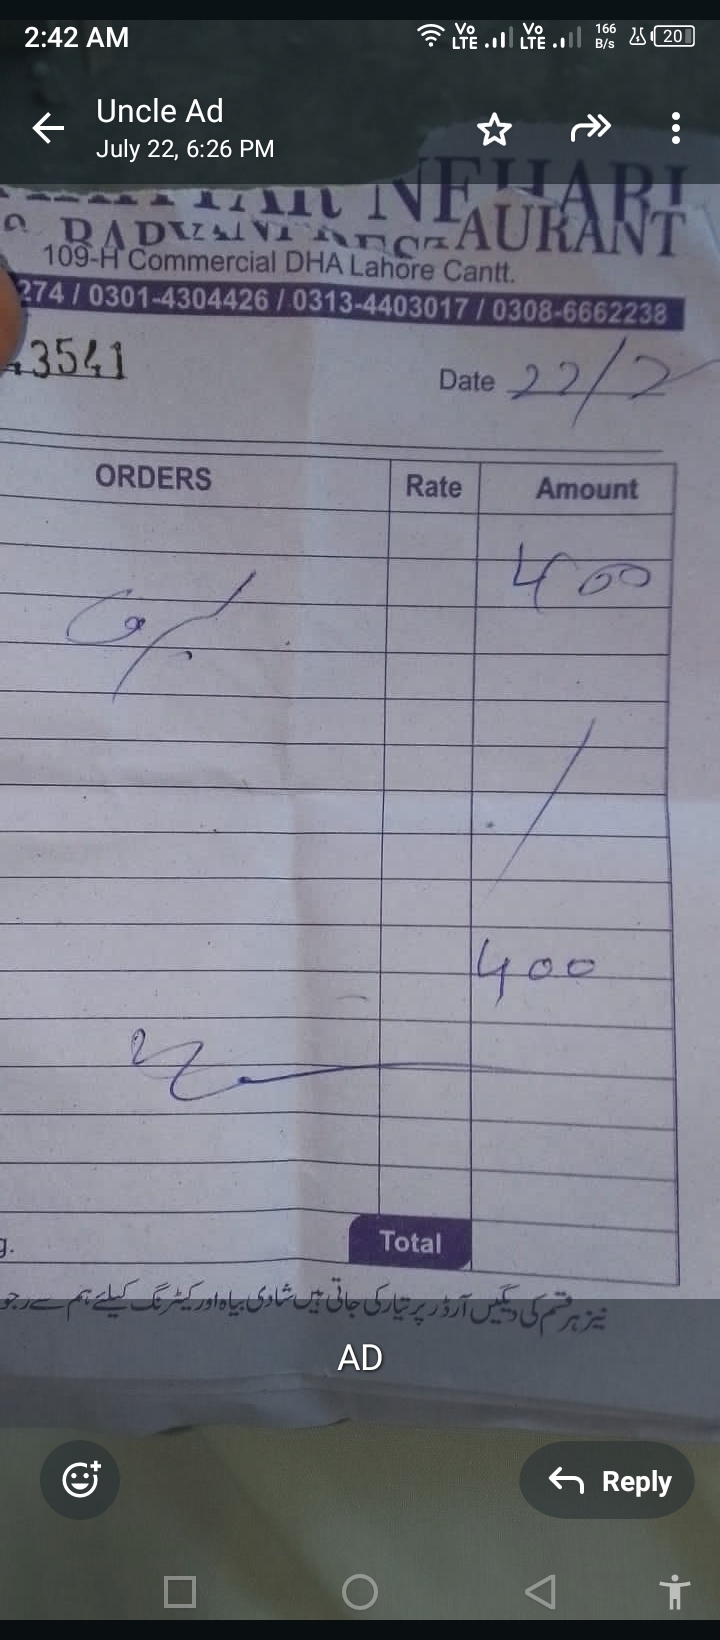 2:42 AM Vo LTE Vo LTE 166 B/s 20
Uncle Ad
July 22, 6:26 PM
NEHARI
RESTAURANT
109-H Commercial DHA Lahore Cantt.
274 / 0301-4304426 / 0313-4403017 / 0308-6662238
3541
Date 22/7
ORDERS Rate Amount
400
400
g. Total
نیز ہر قسم کی دیگیں آرڈر پر تیار کی جاتی ہیں شادی بیاہ اور کیٹرنگ کیلئے ہم سے رجو
AD
Reply